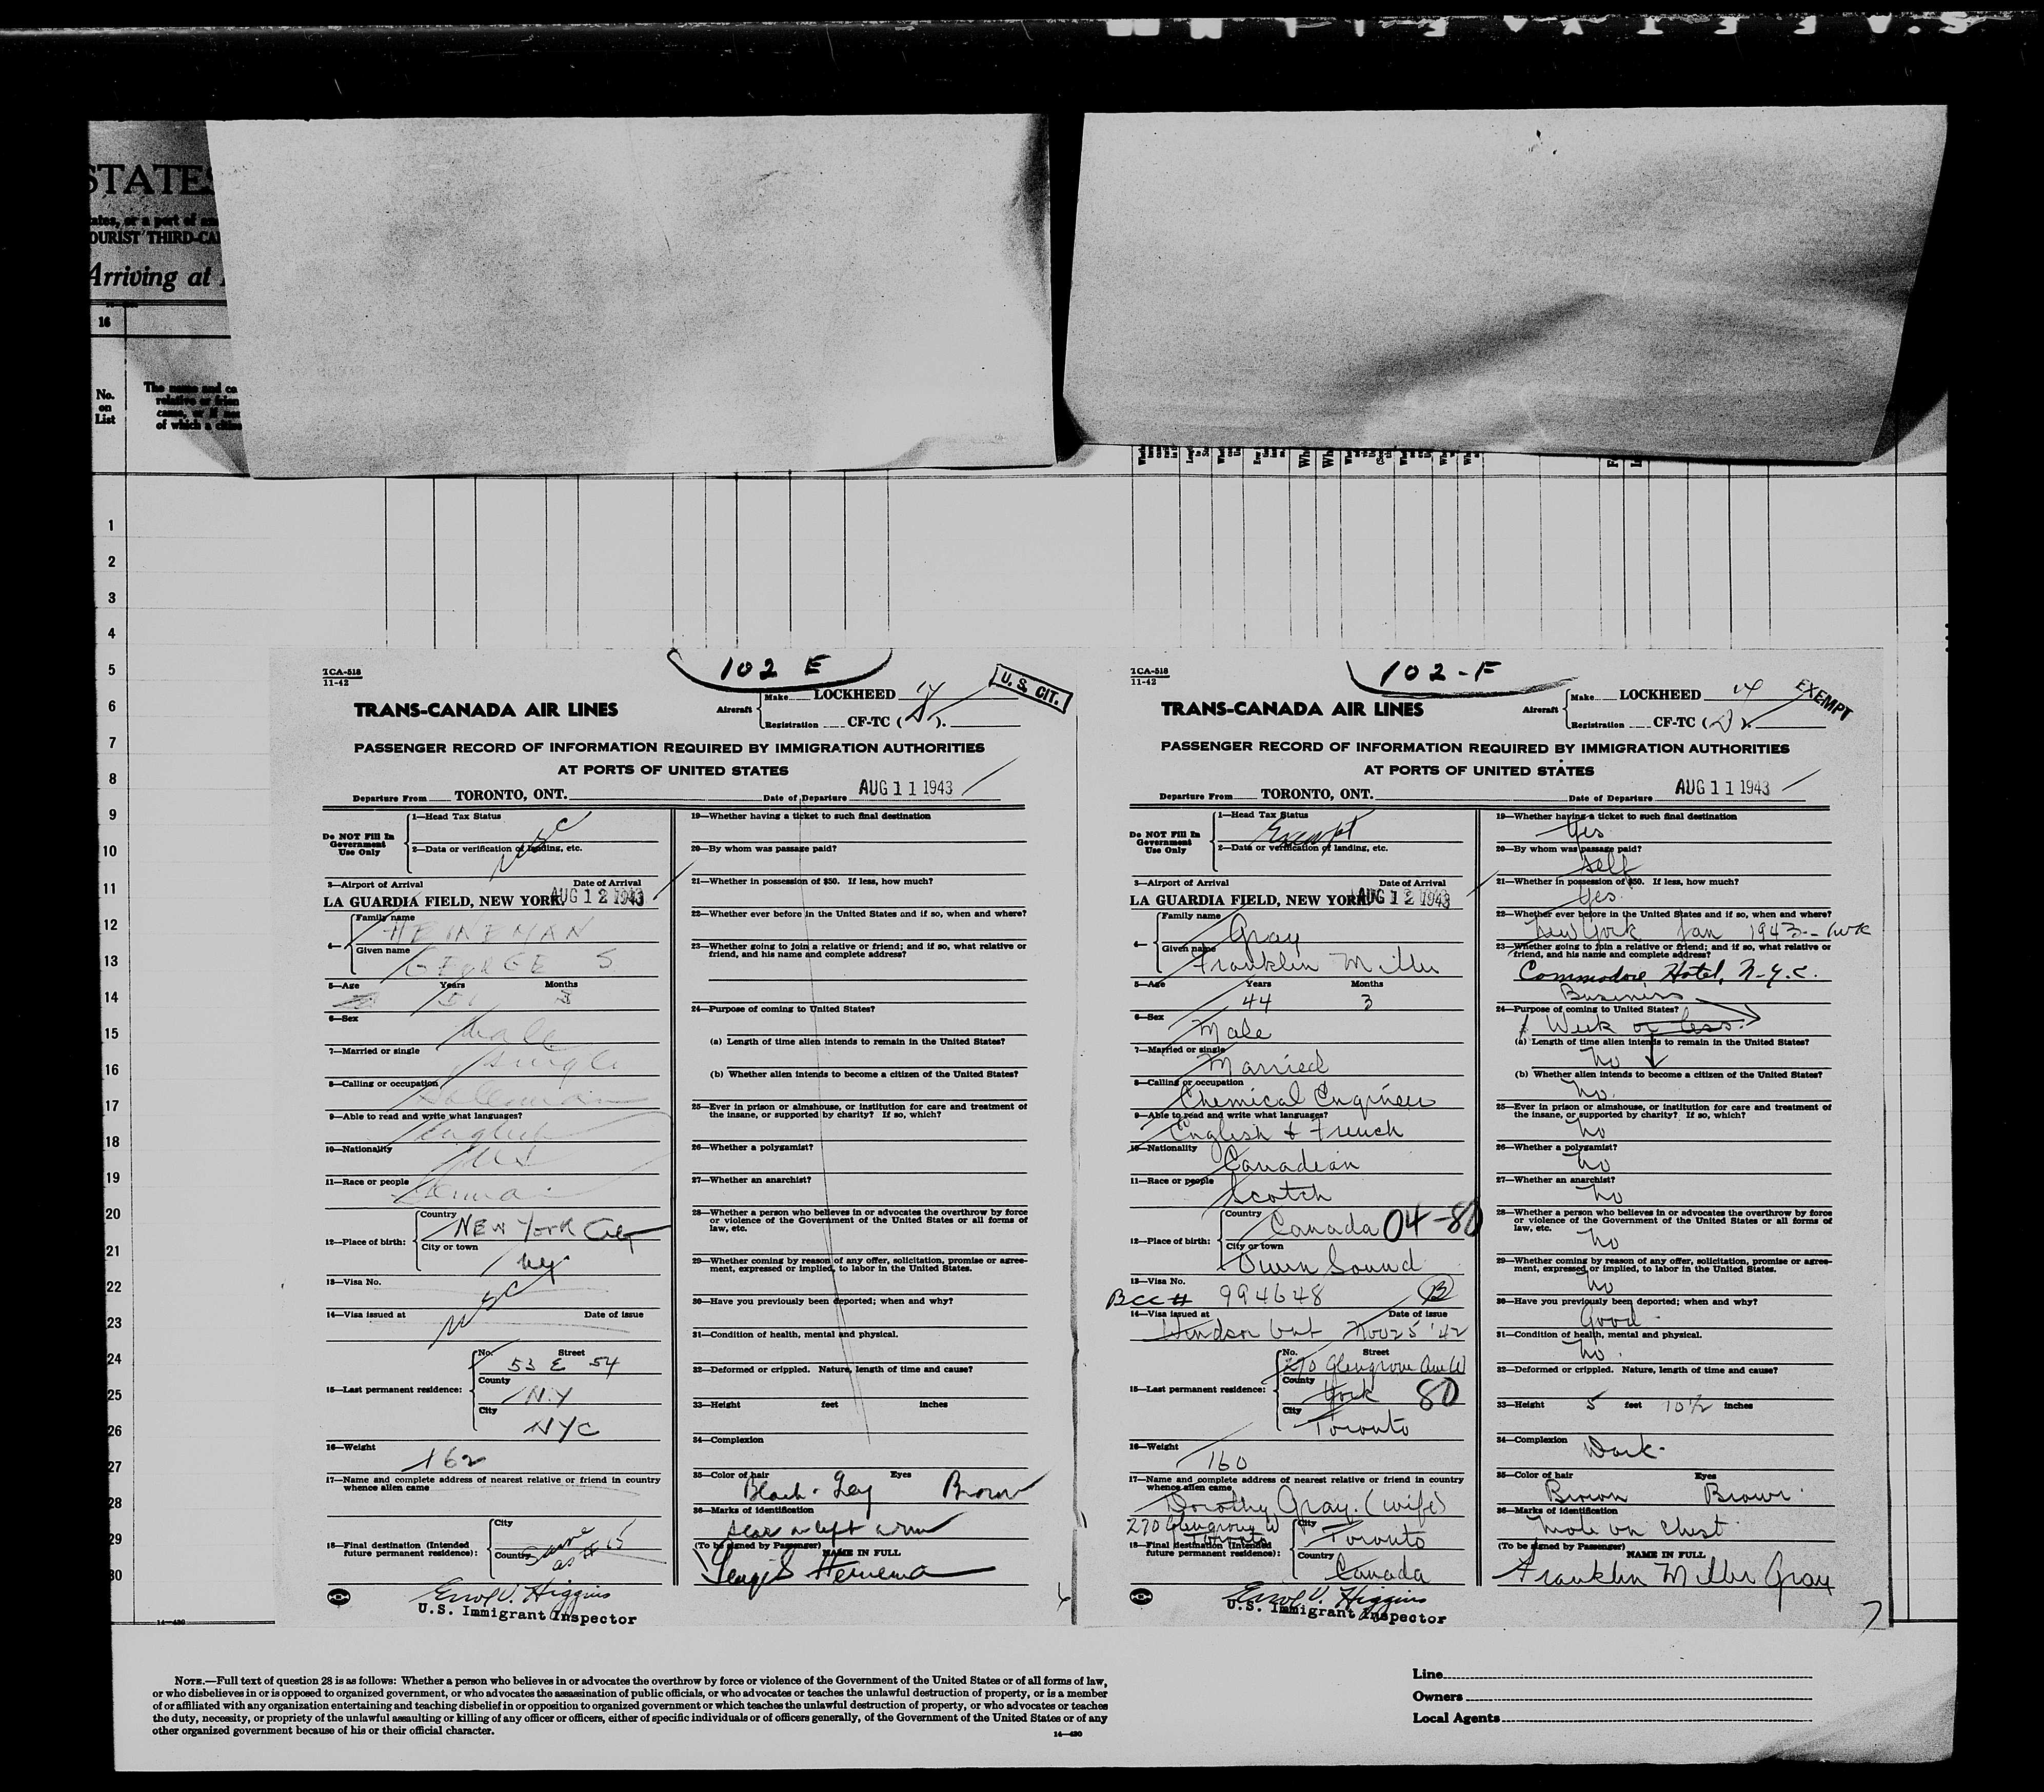 STATES
ates, or a part of an
OURIST THIRD-CA
Arriving at
16
No.
on
List
The name and ca
relative or frien
came, or if no
of which a citiz
1
2
3
4
5
6
7
8
9
10
11
12
13
14
15
16
17
18
19
20
21
22
23
24
25
26
27
28
29
30
14—430
102 E
TCA-518
11-42
U. S. CIT.
TRANS-CANADA AIR LINES
Aircraft
Make LOCKHEED 14
Registration CF-TC ( ).
PASSENGER RECORD OF INFORMATION REQUIRED BY IMMIGRATION AUTHORITIES
AT PORTS OF UNITED STATES
Departure From TORONTO, ONT. Date of Departure AUG 11 1943
Do NOT Fill In
Government
Use Only
1—Head Tax Status
USC
2—Data or verification of landing, etc.
3—Airport of Arrival Date of Arrival
LA GUARDIA FIELD, NEW YORK AUG 12 1943
4— Family name
HEINEMAN
Given name
GEORGE S
5—Age Years Months
51 3
6—Sex
Male
7—Married or single
Single
8—Calling or occupation
Salesman
9—Able to read and write what languages?
English
10—Nationality
US
11—Race or people
German
12—Place of birth:
Country
NEW YORK City
City or town
NY
13—Visa No.
USC
14—Visa issued at Date of issue
15—Last permanent residence:
No. Street
53 E 54
County
N.Y
City
NYC
16—Weight
162
17—Name and complete address of nearest relative or friend in country
whence alien came
18—Final destination (Intended
future permanent residence):
City
Country
Same
as # 15
Errol V. Higgins
U.S. Immigrant Inspector
19—Whether having a ticket to such final destination
20—By whom was passage paid?
21—Whether in possession of $50. If less, how much?
22—Whether ever before in the United States and if so, when and where?
23—Whether going to join a relative or friend; and if so, what relative or
friend, and his name and complete address?
24—Purpose of coming to United States?
(a) Length of time alien intends to remain in the United States?
(b) Whether alien intends to become a citizen of the United States?
25—Ever in prison or almshouse, or institution for care and treatment of
the insane, or supported by charity? If so, which?
26—Whether a polygamist?
27—Whether an anarchist?
28—Whether a person who believes in or advocates the overthrow by force
or violence of the Government of the United States or all forms of
law, etc.
29—Whether coming by reason of any offer, solicitation, promise or agree-
ment, expressed or implied, to labor in the United States.
30—Have you previously been deported; when and why?
31—Condition of health, mental and physical.
32—Deformed or crippled. Nature, length of time and cause?
33—Height feet inches
34—Complexion
35—Color of hair Eyes
Black - Grey Brown
36—Marks of identification
scar on left arm
(To be signed by Passenger) NAME IN FULL
George S Heineman
102-F
TCA-518
11-42
EXEMPT
TRANS-CANADA AIR LINES
Aircraft
Make LOCKHEED 14
Registration CF-TC ( ).
PASSENGER RECORD OF INFORMATION REQUIRED BY IMMIGRATION AUTHORITIES
AT PORTS OF UNITED STATES
Departure From TORONTO, ONT. Date of Departure AUG 11 1943
Do NOT Fill In
Government
Use Only
1—Head Tax Status
Exempt
2—Data or verification of landing, etc.
3—Airport of Arrival Date of Arrival
LA GUARDIA FIELD, NEW YORK AUG 12 1943
4— Family name
Gray
Given name
Franklin Miller
5—Age Years Months
44 3
6—Sex
Male
7—Married or single
Married
8—Calling or occupation
Chemical Engineer
9—Able to read and write what languages?
English & French
10—Nationality
Canadian
11—Race or people
Scotch
12—Place of birth:
Country
Canada 04-80
City or town
Owen Sound
13—Visa No.
BCC # 994648 B
14—Visa issued at Date of issue
Windsor Ont Nov 25 '42
15—Last permanent residence:
No. Street
270 Glengrove Ave W
County
York 80
City
Toronto
16—Weight
160
17—Name and complete address of nearest relative or friend in country
whence alien came
Dorothy Gray. (wife)
270 Glengrove W
Toronto
18—Final destination (Intended
future permanent residence):
City
Toronto
Country
Canada
Errol V. Higgins
U.S. Immigrant Inspector
19—Whether having a ticket to such final destination
Yes
20—By whom was passage paid?
Self
21—Whether in possession of $50. If less, how much?
Yes.
22—Whether ever before in the United States and if so, when and where?
New York Jan 1943 - 1 wk
23—Whether going to join a relative or friend; and if so, what relative or
friend, and his name and complete address?
Commodore Hotel, N.Y.C.
Business
24—Purpose of coming to United States?
1 Week or less.
(a) Length of time alien intends to remain in the United States?
No
(b) Whether alien intends to become a citizen of the United States?
No.
25—Ever in prison or almshouse, or institution for care and treatment of
the insane, or supported by charity? If so, which?
No
26—Whether a polygamist?
No
27—Whether an anarchist?
No
28—Whether a person who believes in or advocates the overthrow by force
or violence of the Government of the United States or all forms of
law, etc.
No
29—Whether coming by reason of any offer, solicitation, promise or agree-
ment, expressed or implied, to labor in the United States.
No
30—Have you previously been deported; when and why?
Good
31—Condition of health, mental and physical.
No.
32—Deformed or crippled. Nature, length of time and cause?
33—Height 5 feet 10½ inches
34—Complexion Dark
35—Color of hair Eyes
Brown Brown
36—Marks of identification
Mole on chest
(To be signed by Passenger) NAME IN FULL
Franklin Miller Gray
7
NOTE.—Full text of question 28 is as follows: Whether a person who believes in or advocates the overthrow by force or violence of the Government of the United States or of all forms of law,
or who disbelieves in or is opposed to organized government, or who advocates the assassination of public officials, or who advocates or teaches the unlawful destruction of property, or is a member
of or affiliated with any organization entertaining and teaching disbelief in or opposition to organized government or which teaches the unlawful destruction of property, or who advocates or teaches
the duty, necessity, or propriety of the unlawful assaulting or killing of any officer or officers, either of specific individuals or of officers generally, of the Government of the United States or of any
other organized government because of his or their official character.
14—430
Line
Owners
Local Agents